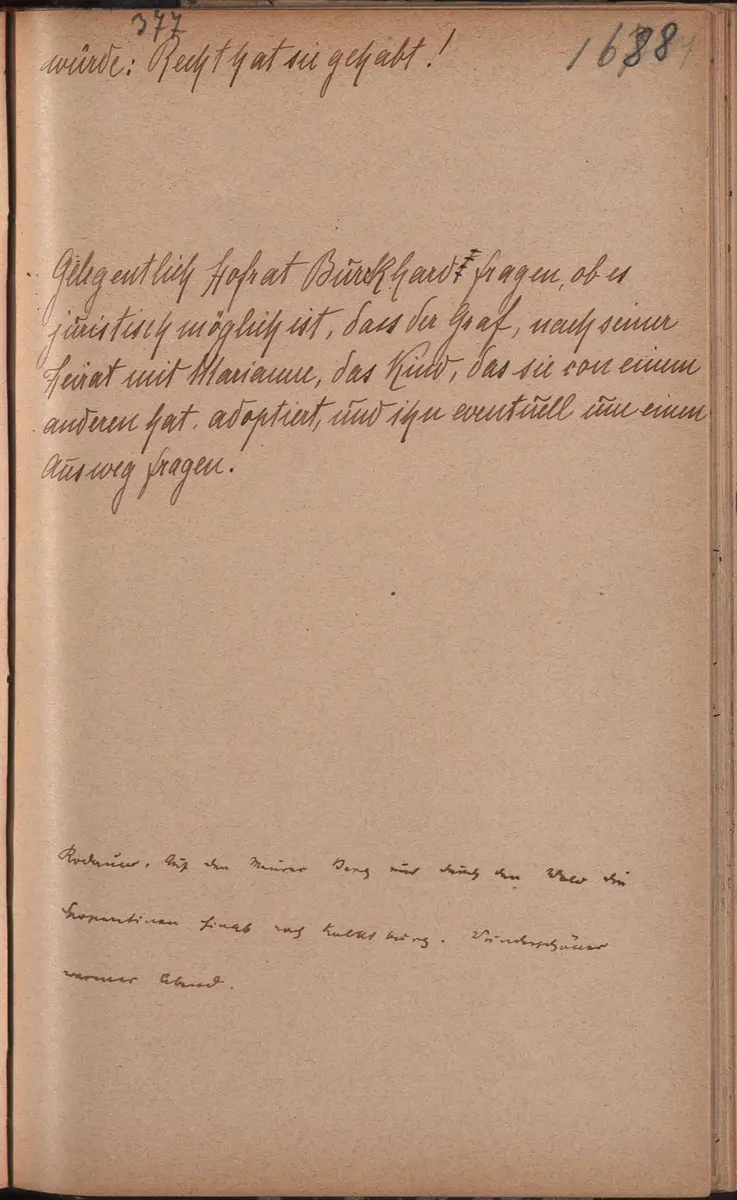 377
1688
würde: Recht hat sie gehabt!
Gelegentlich Hofrat Burckhard fragen, ob es
juristisch möglich ist, dass der Graf, nach seiner
Heirat mit Marianne, das Kind, das sie von einem
anderen hat, adoptiert, und ihn eventuell um einen
Ausweg fragen.
Rodaun. Auf den Maurer Berg und durch den Wald die
Serpentinen hinab nach Kalksburg. Wunderschöner
warmer Abend.